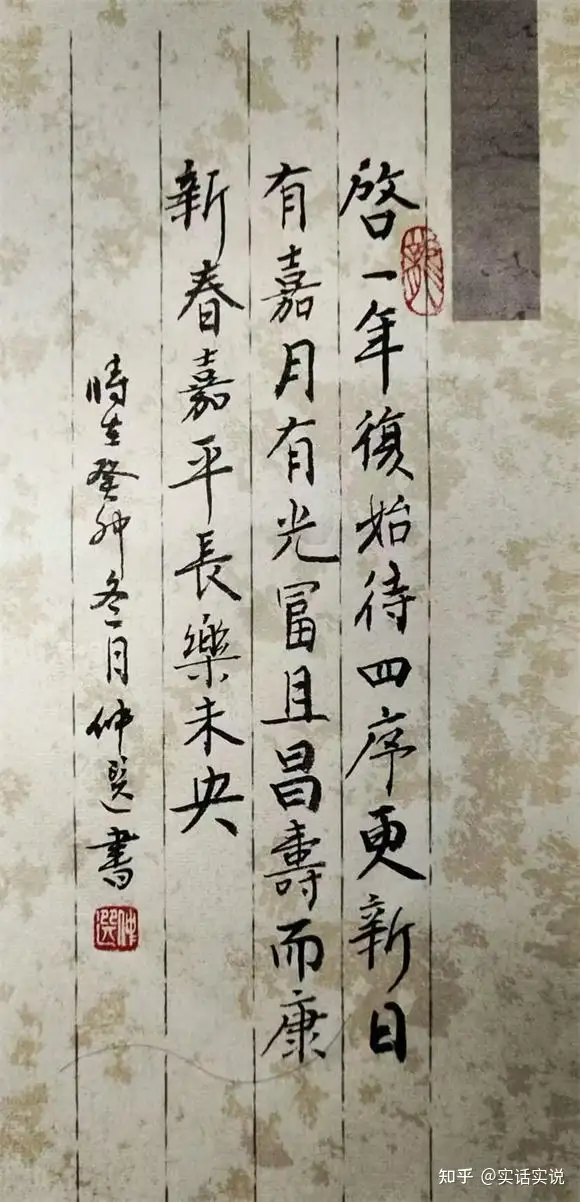 啓一年復始待四序更新日
有嘉月有光富且昌壽而康
新春嘉平長樂未央
時在癸卯冬月仲選書
龍
仲選
知乎 @实话实说